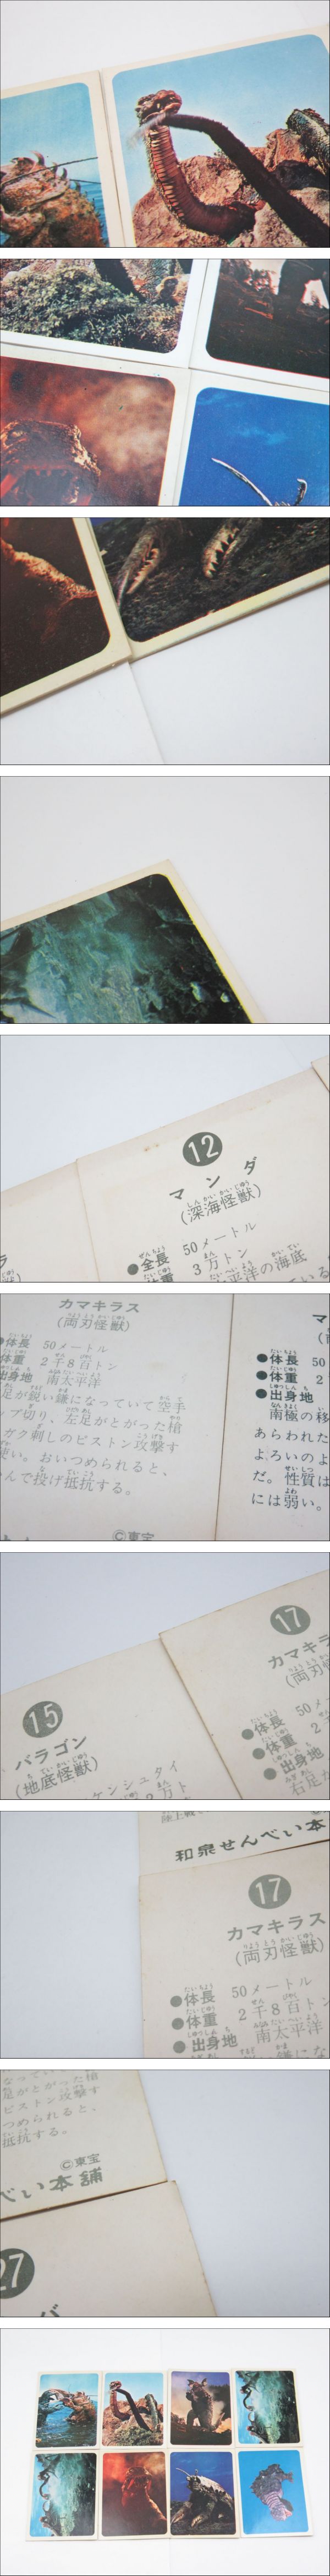 12
マンダ
(深海怪獣)
しんかいかいじゅう
ぜんちょう
●全長 50メートル
体重 3万トン
平洋の海底
カマキラス
りょうとうかいじゅう
(両刃怪獣)
体長 50メートル
体重 2千8百トン
出身地 南太平洋
足が鋭い鎌になっていて空手
ップ切り、左足がとがった槍
ガク刺しのピストン攻撃す
使い。おいつめられると、
んで投げ抵抗する。
©東宝
●体長 50
●体重 2
●出身地
南極の移
あらわれた
よろいのよ
だ。性質は
には弱い。
15
バラゴン
(地底怪獣)
ケンシュタイ
2万ト
17
カマキラ
(両刃怪
●体長 50メ
●体重 2
●出身地
右足が
和泉せんべい本
17
カマキラス
りょうとうかいじゅう
(両刃怪獣)
たいちょう
●体長 50メートル
たいじゅう
●体重 2千8百トン
しゅっしんち
●出身地 南太平洋
なっていて
足がとがった槍
ピストン攻撃す
つめられると、
抵抗する。
©東宝
べい本舗
27